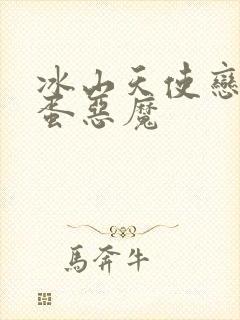 冰山天使戀
蚤惡魔
馬奔牛